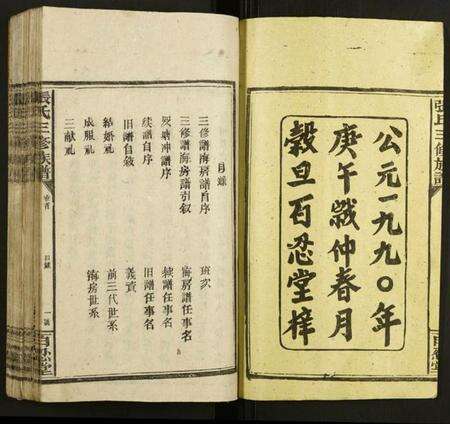 張氏三修族譜
公元一九九〇年
庚午歲仲春月
穀旦百忍堂梓
目錄
三修譜海房譜自序
三修譜海房譜引叙
灰塘冲譜序
续譜自序
旧譜自敘
結婚礼
成服礼
三献礼
班次
海房譜任事名
续譜任事名
旧譜任事名
義資
前三代世系
海房世系
張氏三修族譜
卷首
目錄
一
百忍堂